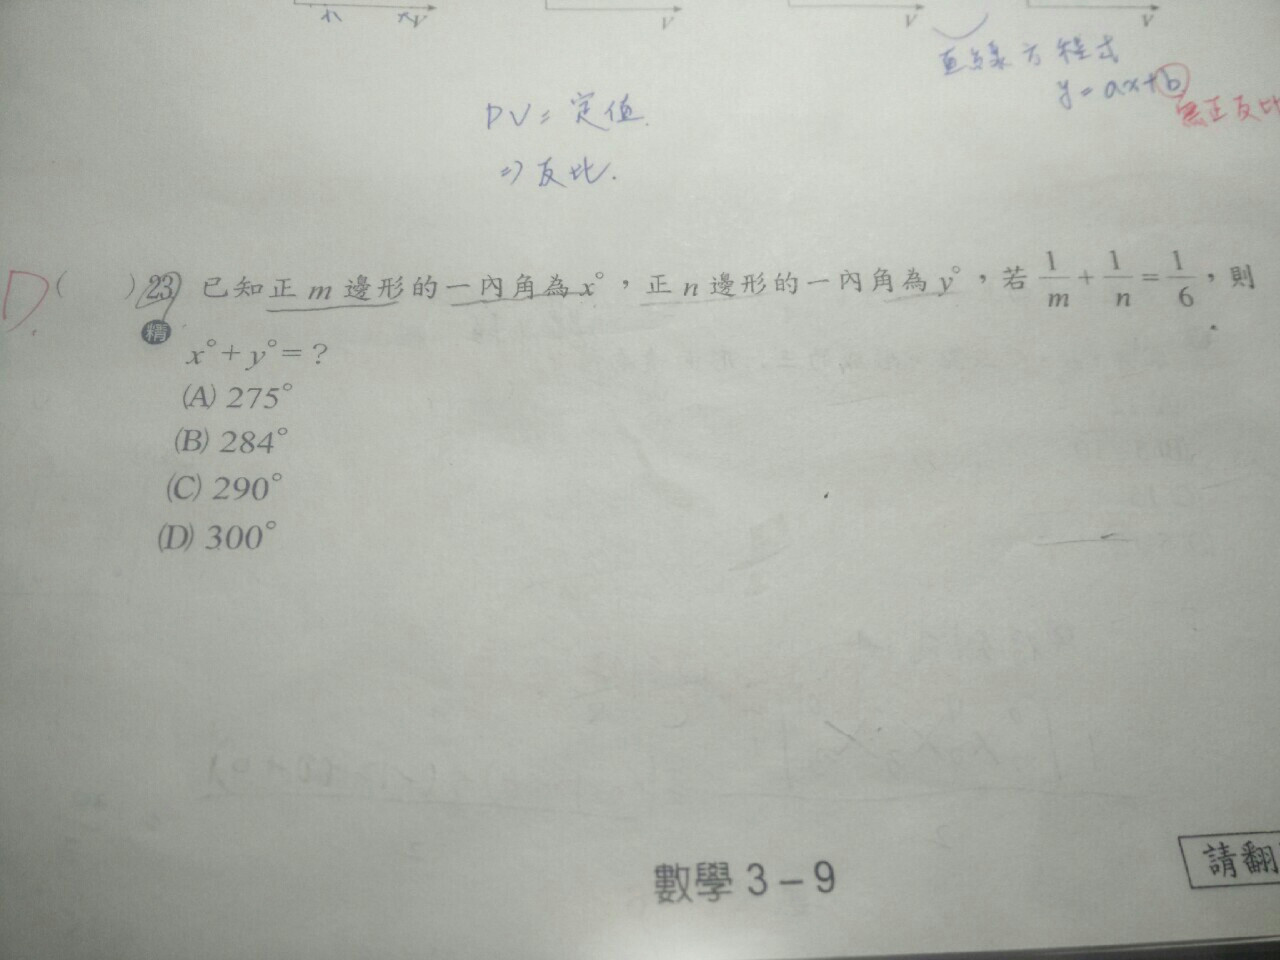 V
V
V
V
直線方程式
y = ax + b
無正反比
PV = 定值.
⇒ 反比.
D ( ) 23 已知正 m 邊形的一內角為 x°，正 n 邊形的一內角為 y°，若 1/m + 1/n = 1/6，則
精
x° + y° = ?
(A) 275°
(B) 284°
(C) 290°
(D) 300°
數學 3 – 9
請翻